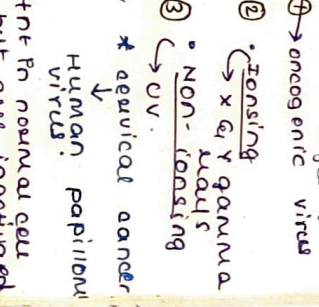 ① → oncogenic virus
② • Ionsing
↳ x & γ gamma
rays
③ • Non-ionsing
↳ UV.
* cervical cancer
↓
Human papillom
virus
tnt in normal cell